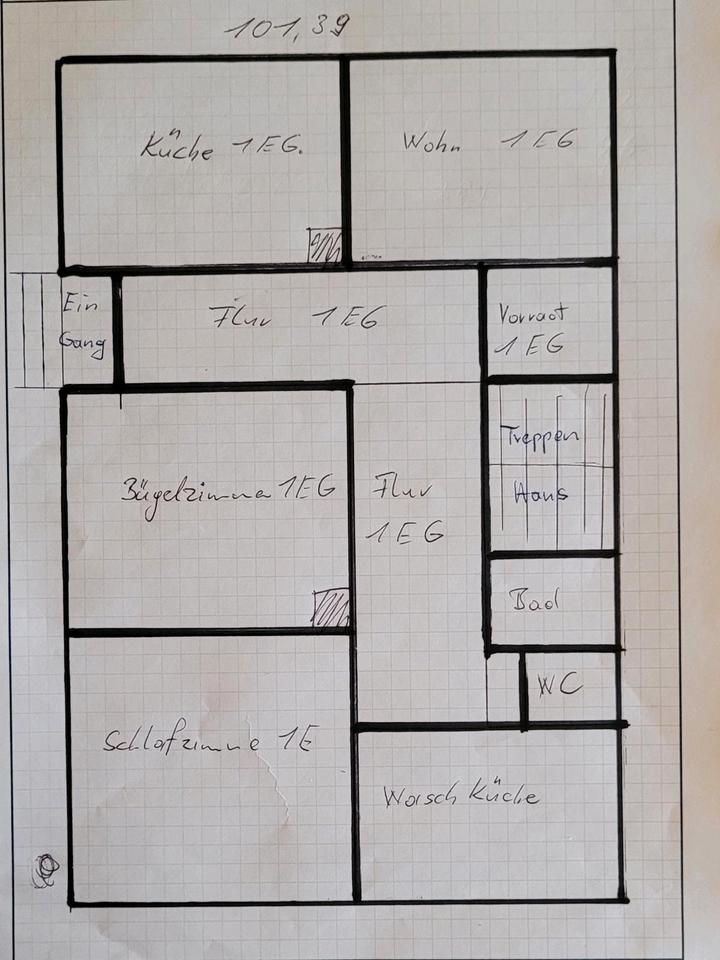 101,39
Küche 1EG.
Wohn 1EG
Ein
Gang
Flur 1EG
Vorraot
1EG
Treppen
Haus
Bügelzimme 1EG
Flur
1EG
Bad
WC
Schlafzimme 1E
Wasch Küche